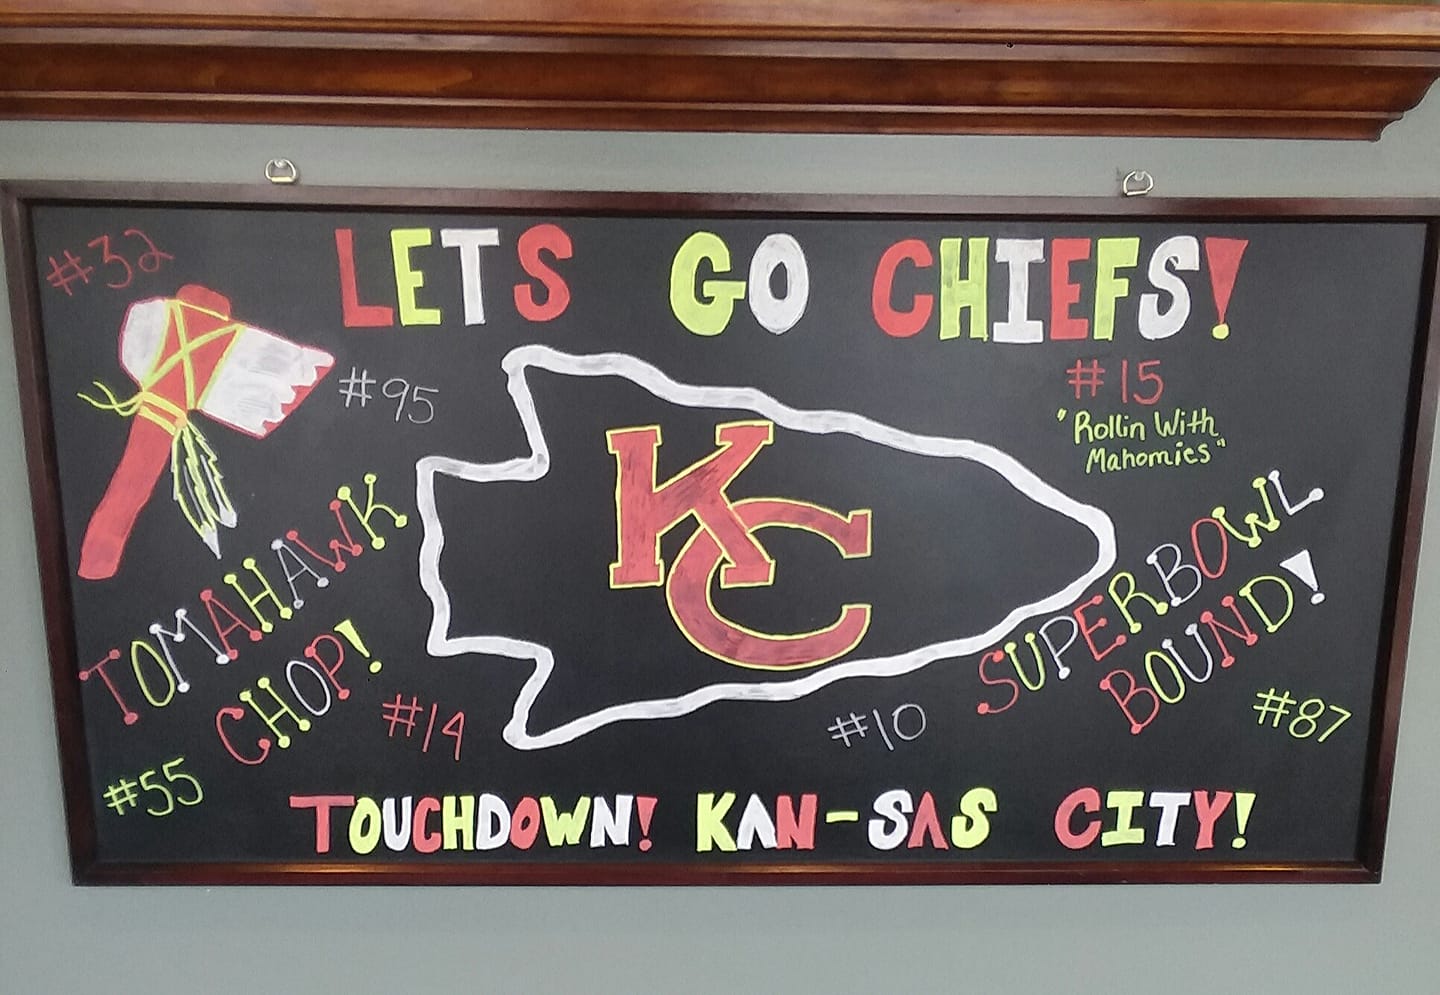 #32
LETS GO CHIEFS!
#95
#15
"Rollin With
Mahomies"
KC
TOMAHAWK
CHOP!
SUPERBOWL
BOUND!
#14
#10
#87
#55
TOUCHDOWN! KAN-SAS CITY!